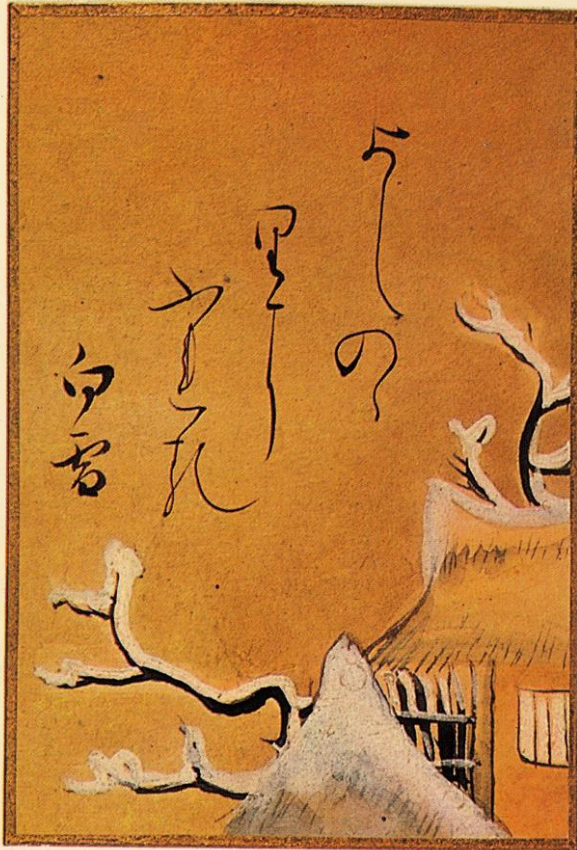 よしの
里に
ふれる
白雪